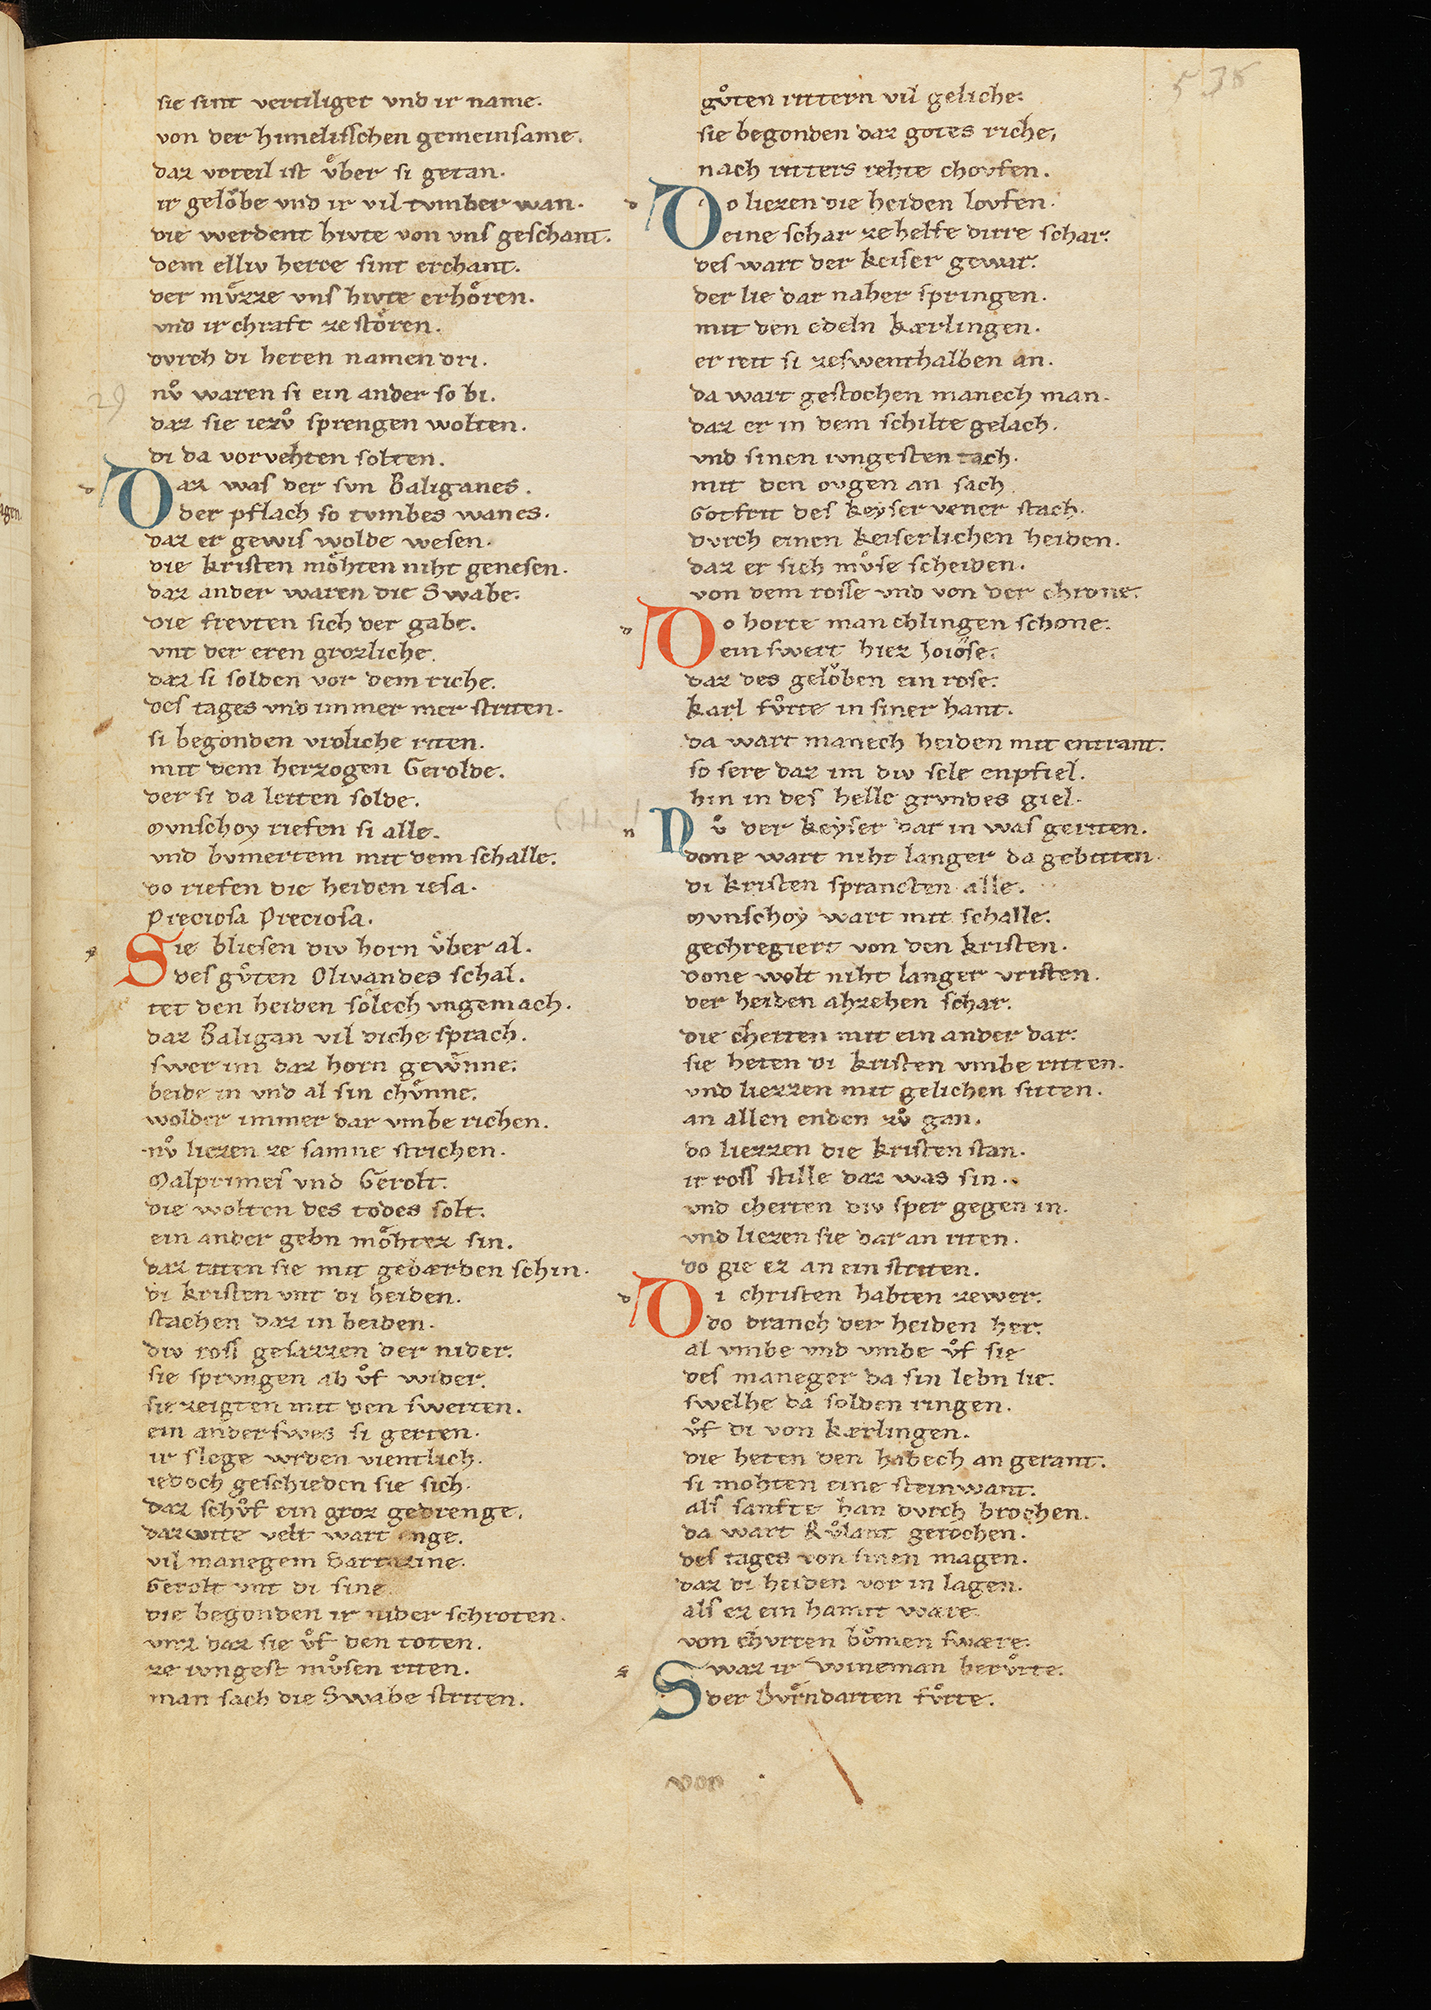 538
sie sint vertiliget vnd ir name.
von der himelisschen gemeinsame.
daz vrteil ist vͦber si getan.
ir gelöbe vnd ir vil tvmber wan.
die werdent hivte von vns geschant.
dem elliv herce sint erchant.
der mvͦzze vns hivte erhören.
vnd ir chraft ze stören.
dvrch di heren namen dri.
nvͦ waren si ein ander so bi.
29
daz sie iezvͦ sprengen wolten.
di da vorvehten solten.
Daz was der svn Baliganes.
der pflach so tvmbes wanes.
daz er gewis wolde wesen.
die kristen möhten niht genesen.
daz ander waren die Swabe.
die frevten sich der gabe.
vnt der eren grozliche.
daz si solden vor dem riche.
des tages vnd immer mer striten.
si begonden vroliche riten.
mit dem herzogen Gerolde.
der si da leiten solde.
Mvnschoy riefen si alle.
vnd bvmertem mit dem schalle.
do riefen die heiden iesa.
Preciosa Preciosa.
Sie bliesen div horn vͦber al.
des gvͦten Olivandes schal.
tet den heiden sölech vngemach.
daz Baligan vil diche sprach.
swer im daz horn gewͦnne.
beide in vnd al sin chvͦnne.
wolder immer dar vmbe richen.
nvͦ liezen ze samne strichen.
Malprimes vnd Gerolt.
die wolten des todes solt.
ein ander gebn möhtez sin.
daz taten sie mit gebærden schin.
di kristen vnt di heiden.
stachen daz in beiden.
div ross gesazzen der nider.
sie sprvngen ab vͦf wider.
sie zeigten mit den swerten.
ein anderswes si gerten.
ir slege wrden vientlich.
iedoch geschieden sie sich.
daz schvͦf ein groz gedrenge.
daz wite velt wart enge.
vil manegem Sarrazine.
Gerolt vnt di sine
die begonden ir nider schroten.
vnz daz sie vͦf den toten.
ze ivngest mvͦsen riten.
man sach die Swabe striten.
gvͦten rittern vil geliche.
sie begonden daz gotes riche,
nach ritters rehte choufen.
Do liezen die heiden lovfen.
eine schar zehelfe dirre schar.
des wart der keiser gewar.
der lie dar naher springen.
mit den edeln kærlingen.
er reit si zeswenthalben an.
da wart gestochen manech man.
daz er in dem schilte gelach.
vnd sinen ivngesten tach.
mit den ovgen an sach.
Gotfrit des keyser vener stach.
dvrch einen keiserlichen heiden.
daz er sich mvͦse scheiden.
von dem rosse vnd von der chrone.
Do horte man chlingen schone.
ein swert hiez Joiöse.
daz des gelöben ein rose.
karl fvͦrte in siner hant.
da wart manech heiden mit entrant.
so sere daz im div sele enpfiel.
hin in des helle grvndes giel.
Nvͦ der keyser dar in was geriten.
done wart niht langer da gebiten.
di kristen sprancten alle.
Mvnschoy wart mit schalle.
gechregiert von den kristen.
done wolt niht langer vristen.
der heiden ahzehen schar.
die cherten mit ein ander dar.
sie heten di kristen vmbe riten.
vnd liezzen mit gelichen siten.
an allen enden zvͦ gan.
do liezzen die kristen stan.
ir ross stille daz was sin.
vnd cherten div sper gegen in.
vnd liezen sie dar an riten.
do gie ez an ein striten.
Di christen habten zewer.
do dranch der heiden her.
al vmbe vnd vmbe vͦf sie
des maneger da sin lebn lie.
swelhe da solden ringen.
vͦf di von kærlingen.
die heten den habech an gerant.
si mohten eine steinwant.
als sanfte han dvrch brochen.
da wart Rvͦlant gerochen.
des tages von sinen magen.
daz di heiden vor in lagen.
als ez ein hamit wære
von chvrten bömen swære.
Swaz ir wineman bervͦrte.
der Dvͦrndarten fvͦrte.
von